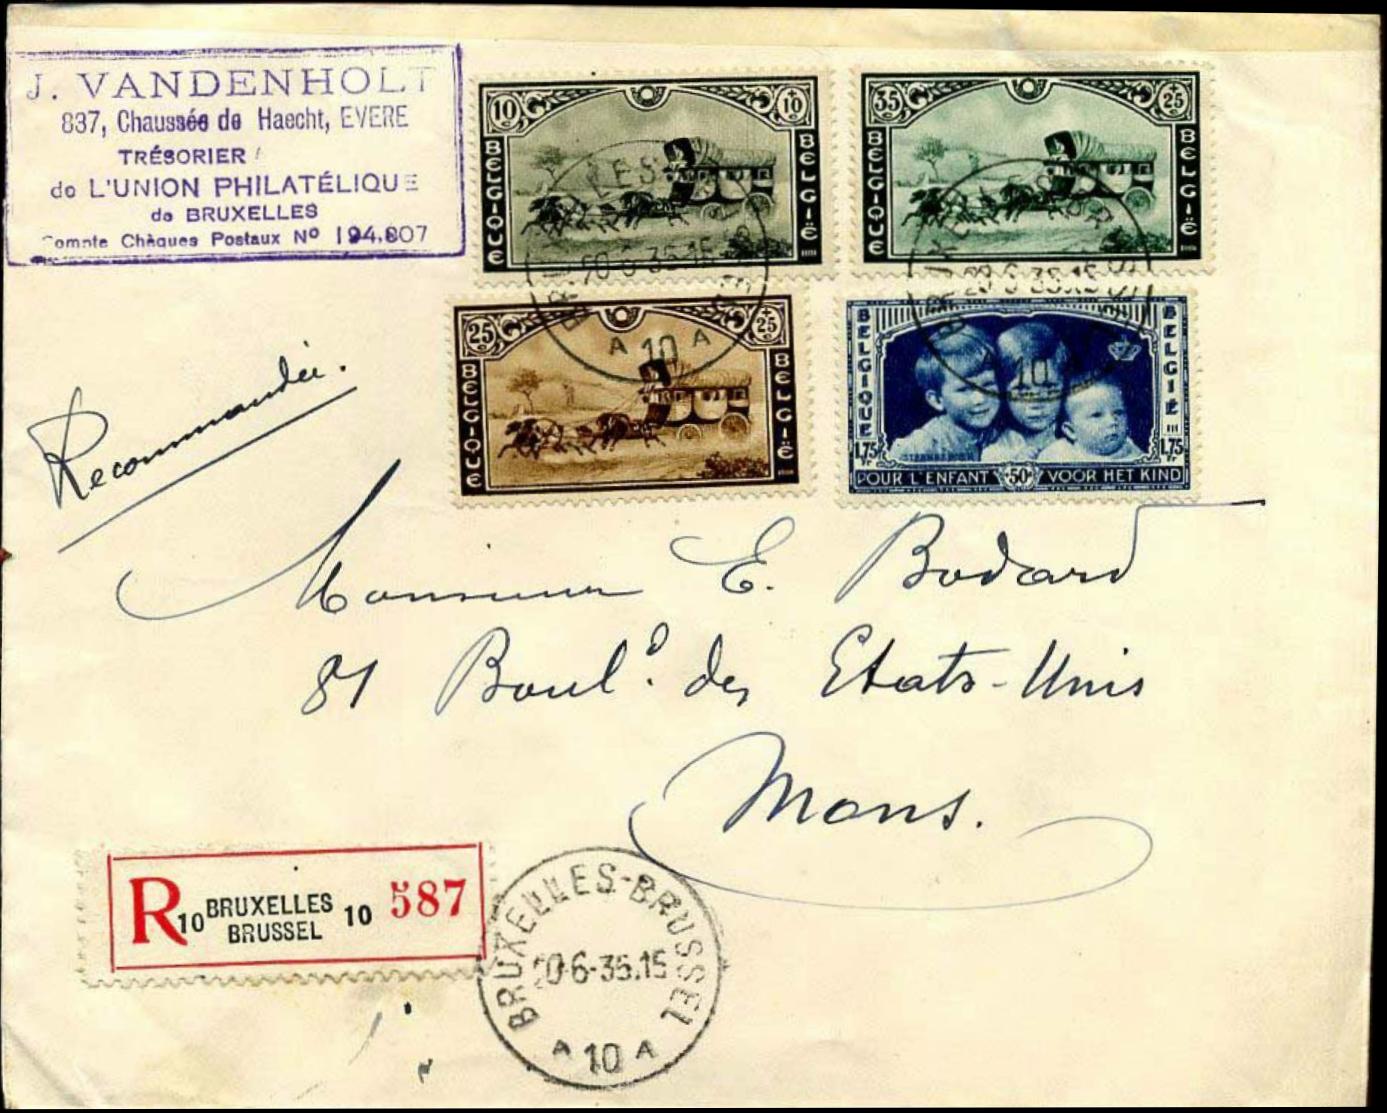 J. VANDENHOLT
837, Chaussée de Haecht, EVERE
TRÉSORIER
de L'UNION PHILATÉLIQUE
de BRUXELLES
Compte Chèques Postaux Nº 194.807
10 +10
BELGIQUE BELGIË
35 +25
BELGIQUE BELGIË
25 +25
BELGIQUE BELGIË
BELGIQUE BELGIË
1,75 Fr 1,75 Fr
POUR L'ENFANT +50c VOOR HET KIND
20-6-35.15
A 10 A
20-6-35.15
A 10 A
Recommandée.
Monsieur E. Bodard
81 Boulᵈ. des Etats-Unis
Mons.
R 10 BRUXELLES 10 587
BRUSSEL
BRUXELLES-BRUSSEL
20-6-35.15
A 10 A